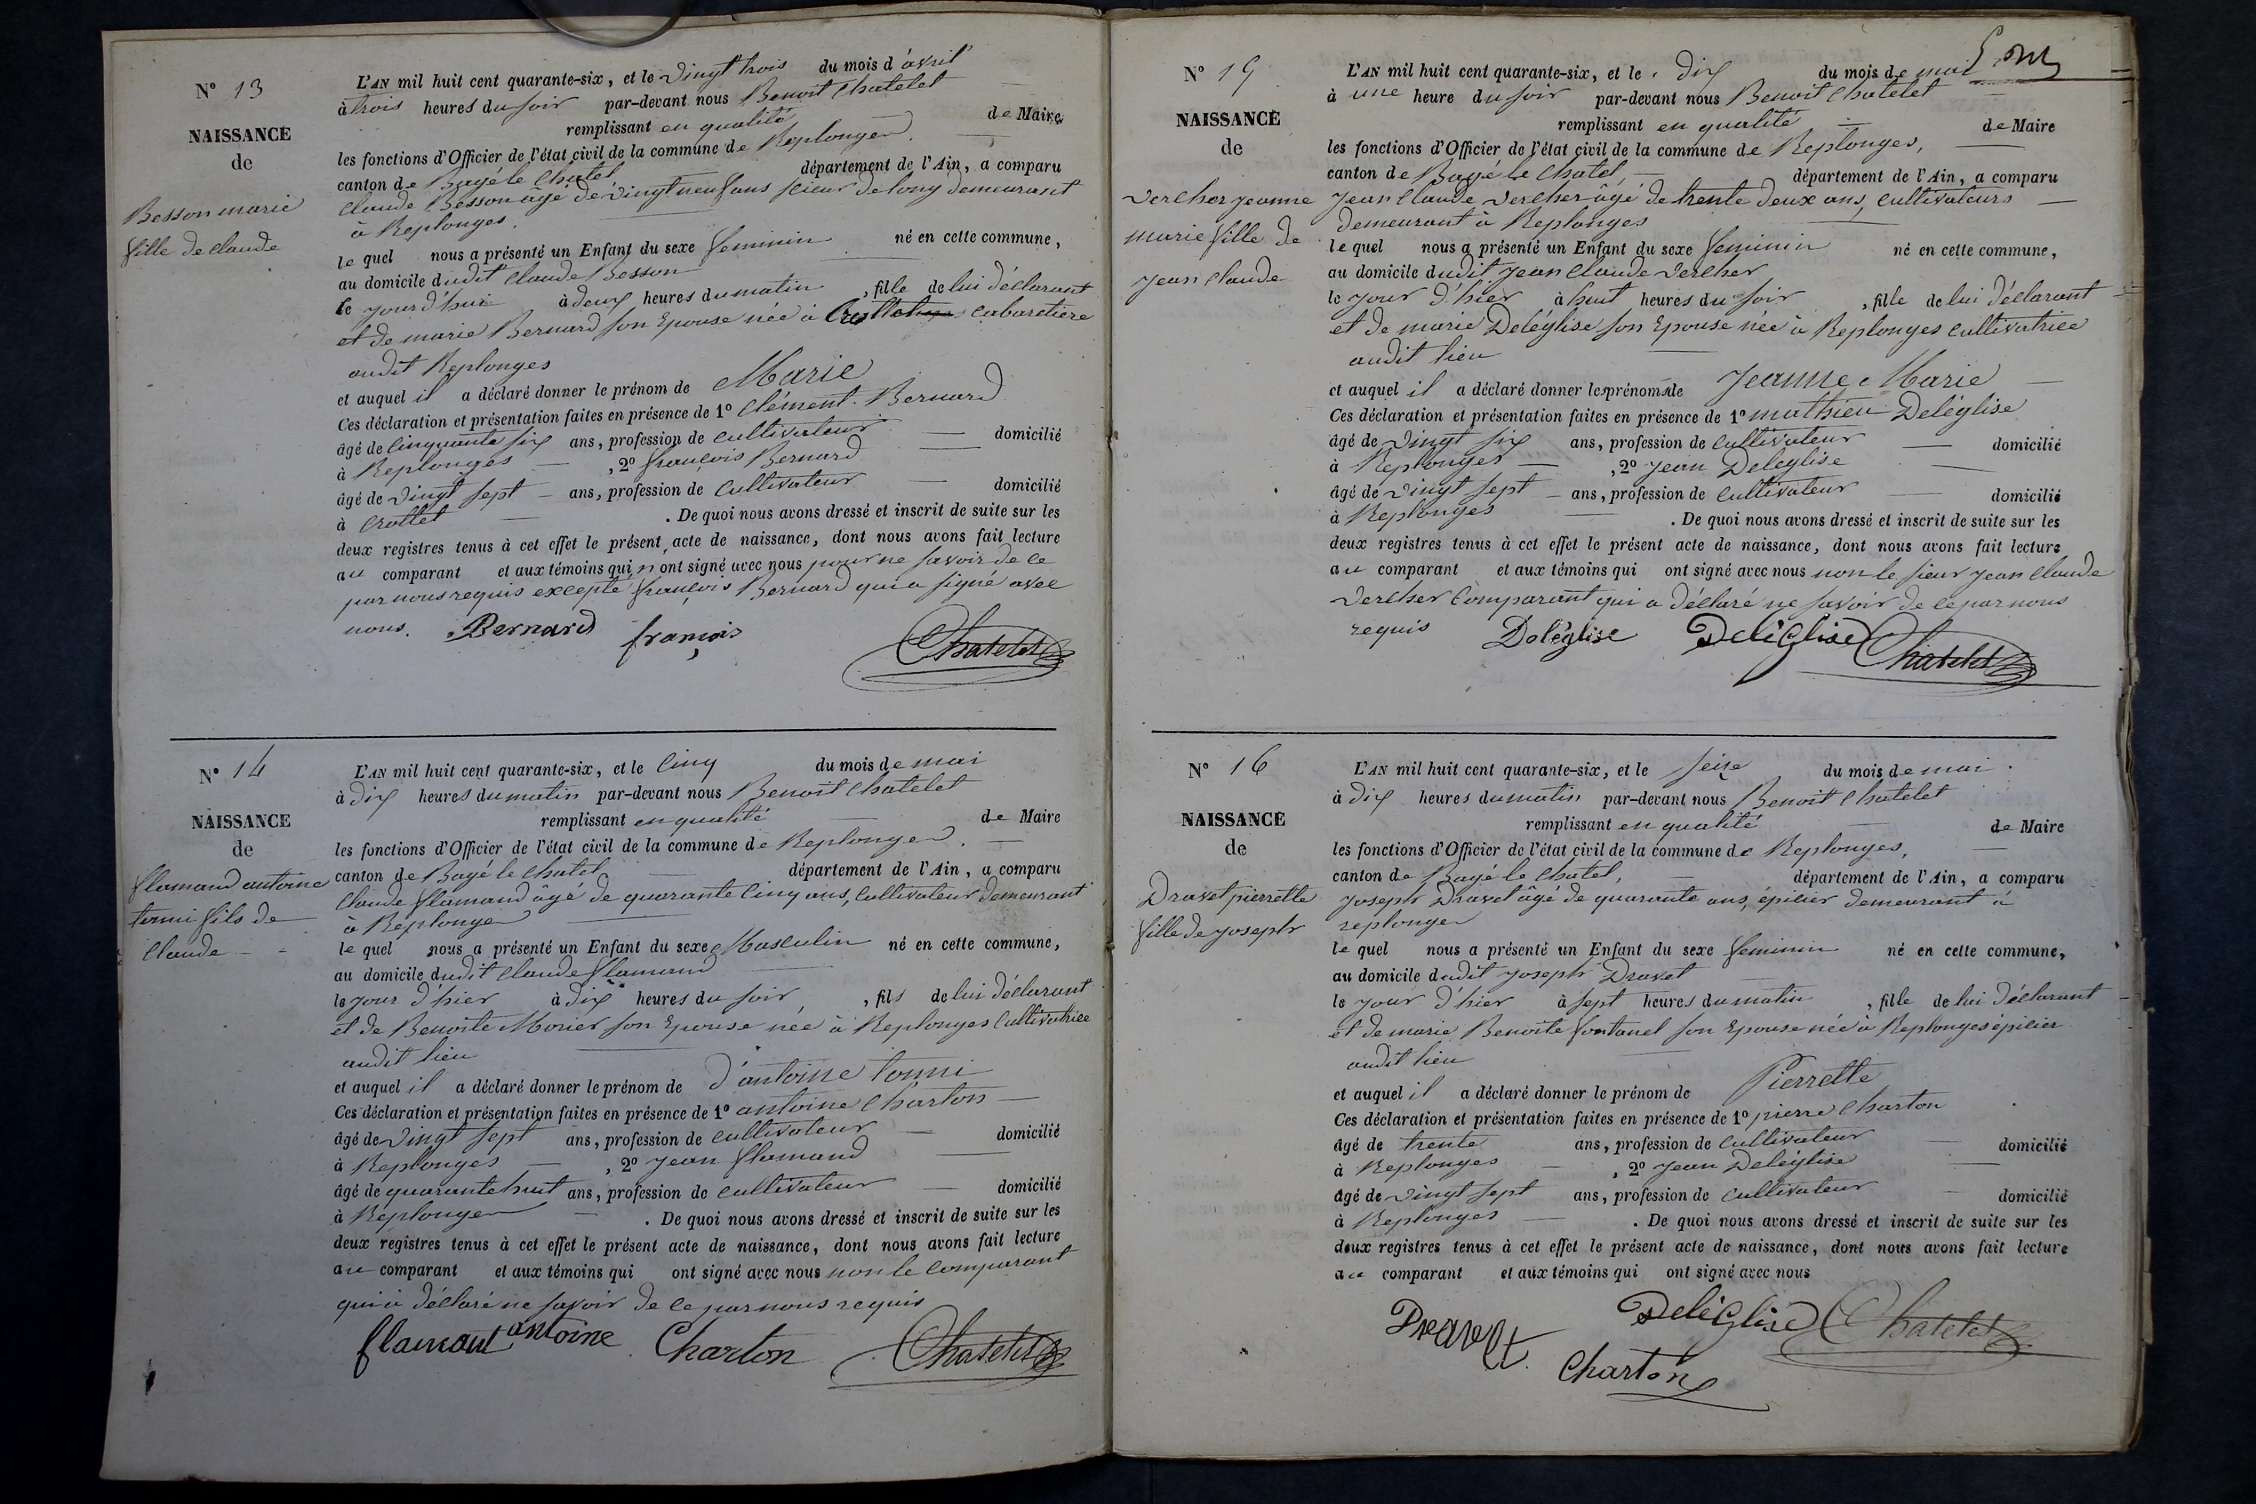 N° 13
NAISSANCE
de
Besson marie
fille de claude
L'AN mil huit cent quarante-six, et le vingt trois du mois d'avril
à trois heures du soir par-devant nous Benoit Chatelet
remplissant en qualité de Maire
les fonctions d'Officier de l'état civil de la commune de Replonges.
canton de Bagé le Chatel département de l'Ain, a comparu
Claude Besson âgé de vingt neuf ans scieur de long demeurant
à Replonges.
le quel nous a présenté un Enfant du sexe feminin né en cette commune,
au domicile dudit Claude Besson
le jourd'hui à deux heures du matin, fille de lui déclarant
et de marie Bernard son Epouse née à cabaretiere
audit Replonges
et auquel il a déclaré donner le prénom de Marie
Ces déclaration et présentation faites en présence de 1° Clément Bernard
âgé de cinquante six ans, profession de cultivateur domicilié
à Replonges, 2° françois Bernard
âgé de vingt sept ans, profession de cultivateur domicilié
à Crottet. De quoi nous avons dressé et inscrit de suite sur les
deux registres tenus à cet effet le présent acte de naissance, dont nous avons fait lecture
au comparant et aux témoins qui n ont signé avec nous pour ne savoir de ce
par nous requis excepté françois Bernard qui a signé avec
nous. Bernard françois Chatelet
N° 14
NAISSANCE
de
flamand antoine
tonni fils de
Claude
L'AN mil huit cent quarante-six, et le cinq du mois de mai
à dix heures du matin par-devant nous Benoit Chatelet
remplissant en qualité de Maire
les fonctions d'Officier de l'état civil de la commune de Replonges.
canton de Bagé le Chatel département de l'Ain, a comparu
Claude flamand âgé de quarante cinq ans, cultivateur demeurant
à Replonges
le quel nous a présenté un Enfant du sexe Masculin né en cette commune,
au domicile dudit Claude flamand
le jour d'hier à dix heures du soir, fils de lui déclarant
et de Benoite Morier son Epouse née à Replonges cultivatrice
audit lieu
et auquel il a déclaré donner le prénom de d'antoine tonni
Ces déclaration et présentation faites en présence de 1° antoine Charton
âgé de vingt sept ans, profession de cultivateur domicilié
à Replonges, 2° jean flamand
âgé de quarante huit ans, profession de cultivateur domicilié
à Replonges. De quoi nous avons dressé et inscrit de suite sur les
deux registres tenus à cet effet le présent acte de naissance, dont nous avons fait lecture
au comparant et aux témoins qui ont signé avec nous non le comparant
qui a déclaré ne savoir de ce par nous requis
flamant antoine Charton Chatelet
N° 15
NAISSANCE
de
Vercher jeanne
marie fille de
jean claude
L'AN mil huit cent quarante-six, et le dix du mois de mai
à une heure du soir par-devant nous Benoit Chatelet
remplissant en qualité de Maire
les fonctions d'Officier de l'état civil de la commune de Replonges,
canton de Bagé le Chatel, département de l'Ain, a comparu
jean Claude Vercher âgé de trente deux ans, cultivateurs
demeurant à Replonges
le quel nous a présenté un Enfant du sexe feminin né en cette commune,
au domicile dudit jean Claude Vercher
le jour d'hier à huit heures du soir, fille de lui déclarant
et de marie Deléglise son Epouse née à Replonges cultivatrice
audit lieu
et auquel il a déclaré donner les prénoms de Jeanne Marie
Ces déclaration et présentation faites en présence de 1° mathieu Deléglise
âgé de vingt six ans, profession de cultivateur domicilié
à Replonges, 2° jean Deleglise
âgé de vingt sept ans, profession de cultivateur domicilié
à Replonges. De quoi nous avons dressé et inscrit de suite sur les
deux registres tenus à cet effet le présent acte de naissance, dont nous avons fait lecture
au comparant et aux témoins qui ont signé avec nous non le sieur jean Claude
Vercher comparant qui a déclaré ne savoir de ce par nous
requis Deléglise Deléglise Chatelet
N° 16
NAISSANCE
de
Dravet pierrette
fille de joseph
L'AN mil huit cent quarante-six, et le seise du mois de mai
à dix heures du matin par-devant nous Benoit Chatelet
remplissant en qualité de Maire
les fonctions d'Officier de l'état civil de la commune de Replonges,
canton de Bagé le Chatel, département de l'Ain, a comparu
joseph Dravet âgé de quarante ans, épicier demeurant à
replonges
le quel nous a présenté un Enfant du sexe feminin né en cette commune,
au domicile dudit joseph Dravet
le jour d'hier à sept heures du matin, fille de lui déclarant
et de marie Benoite fontanel son Epouse née à Replonges épicier
audit lieu
et auquel il a déclaré donner le prénom de Pierrette
Ces déclaration et présentation faites en présence de 1° pierre Charton
âgé de trente ans, profession de cultivateur domicilié
à Replonges, 2° jean Deléglise
âgé de vingt sept ans, profession de cultivateur domicilié
à Replonges. De quoi nous avons dressé et inscrit de suite sur les
deux registres tenus à cet effet le présent acte de naissance, dont nous avons fait lecture
au comparant et aux témoins qui ont signé avec nous
Dravet Deléglise Chatelet
Charton